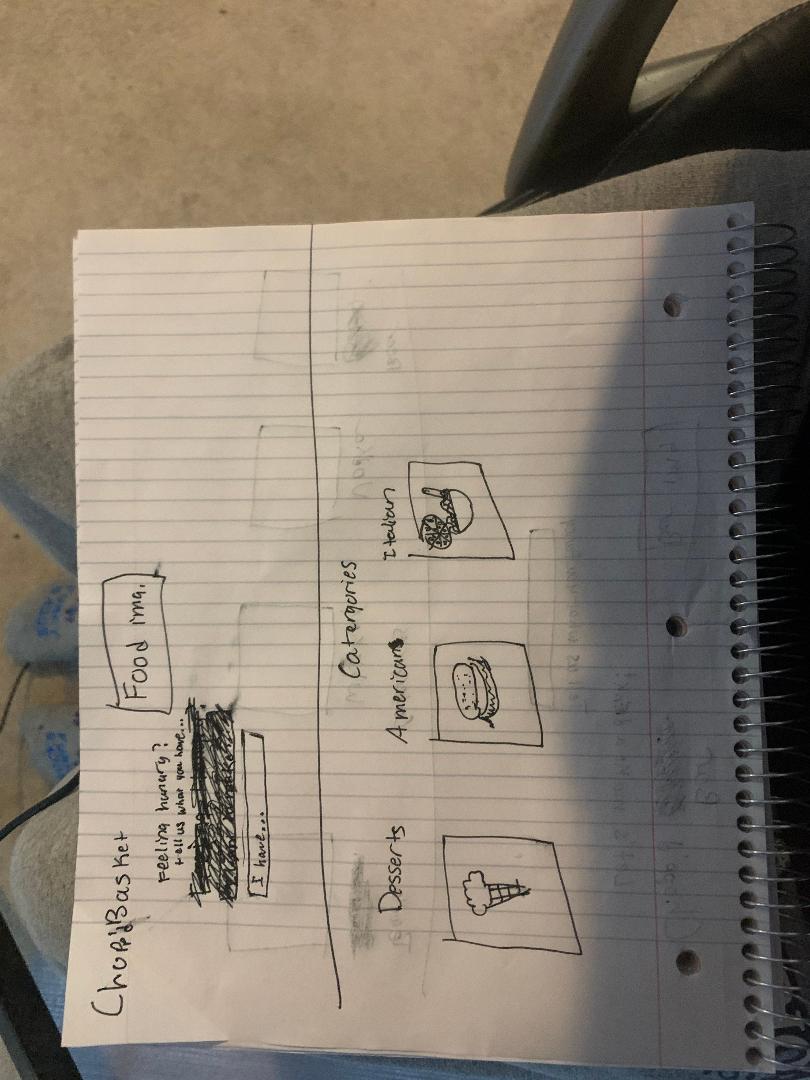 Chop'dBasket
Food img.
Feeling hungry?
tell us what you have...
I have...
Catergories
Desserts
American
Italian